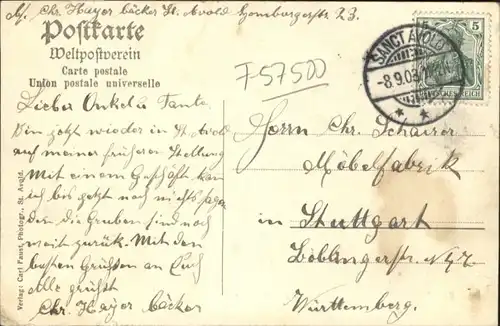 Abs. Chr. Hayer bäcker St. Avold Homburgerstr. 23.
Postkarte
Weltpostverein
Carte postale
Union postale universelle
F-57500
SANCT AVOLD
-8.9.03
5
Lieber Onkel u Tante.
Bin jetzt wieder in St. Avold
auf meiner früheren Stellung
Mit einem Geschäft kan
ich bis jetzt noch nichts sagen
den die Gruben sind noch
weit zurück. Mit den
besten Grüßen an Euch
Alle grüßt
Chr. Hayer bäcker
Herrn Chr. Schairer
Möbelfabrik
in Stuttgart
Böblingerstr.
Württemberg.
Verlag: Carl Faust, Photogr., St. Avold.